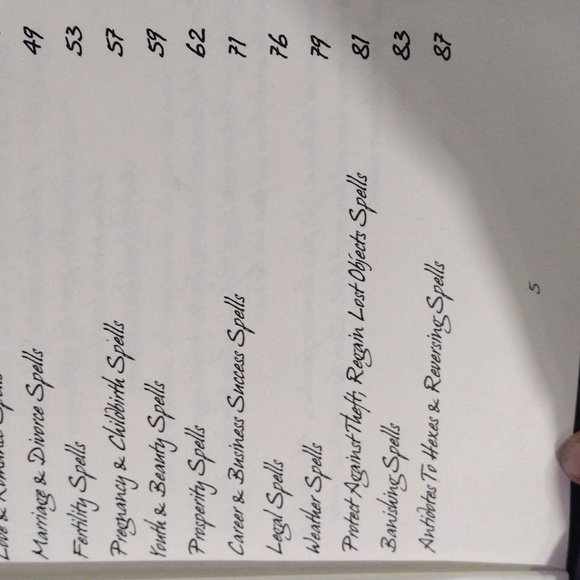 Love & Romance Spells
Marriage & Divorce Spells 49
Fertility Spells 53
Pregnancy & Childbirth Spells 57
Youth & Beauty Spells 59
Prosperity Spells 62
Career & Business Success Spells 71
Legal Spells 76
Weather Spells 79
Protect Against Theft, Regain Lost Objects Spells 81
Banishing Spells 83
Antidotes To Hexes & Reversing Spells 87
5